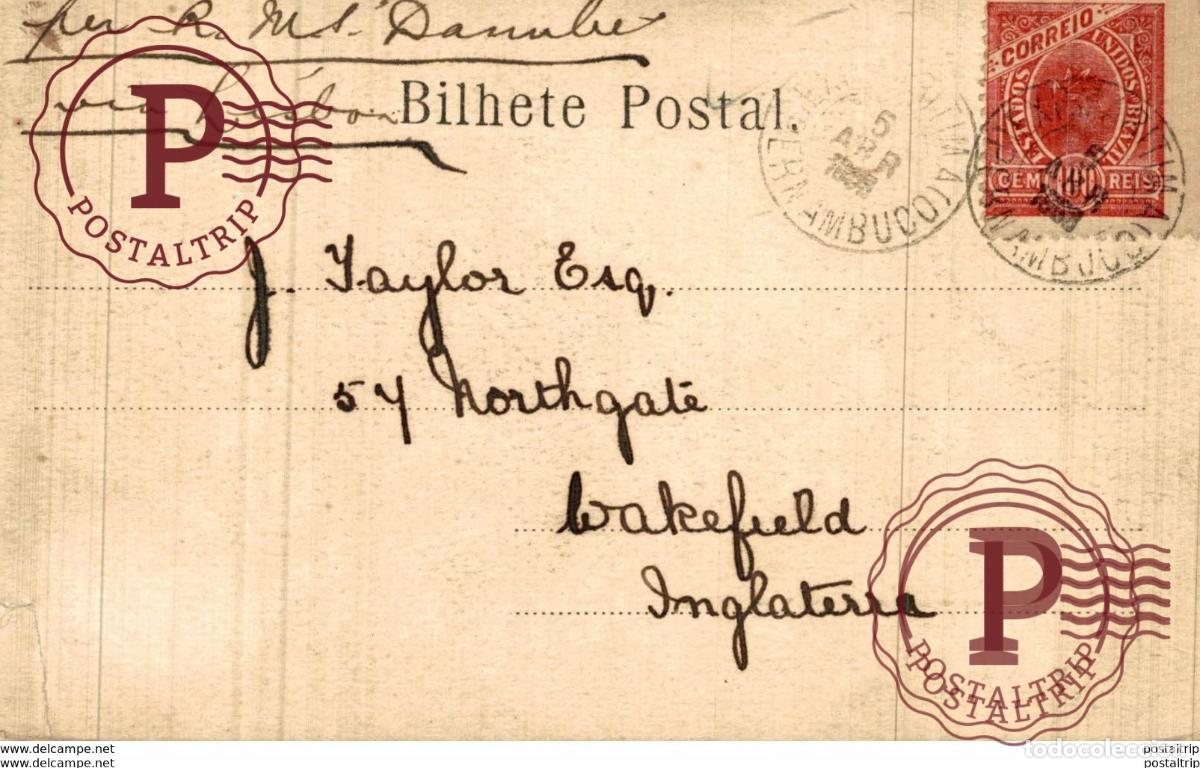 per R. M. S. Danube
via Lisbon
Bilhete Postal.
CORREIO
ESTADOS UNIDOS BRAZIL
CEM 100 REIS
5
ABR
PERNAMBUCO
PERNAMBUCO
J. Taylor Esq.
57 Northgate
Wakefield
Inglaterra
P
POSTALTRIP
P
POSTALTRIP
POSTALTRIP
todocoleccion
www.delcampe.net
www.delcampe.net
postaltrip
postaltrip